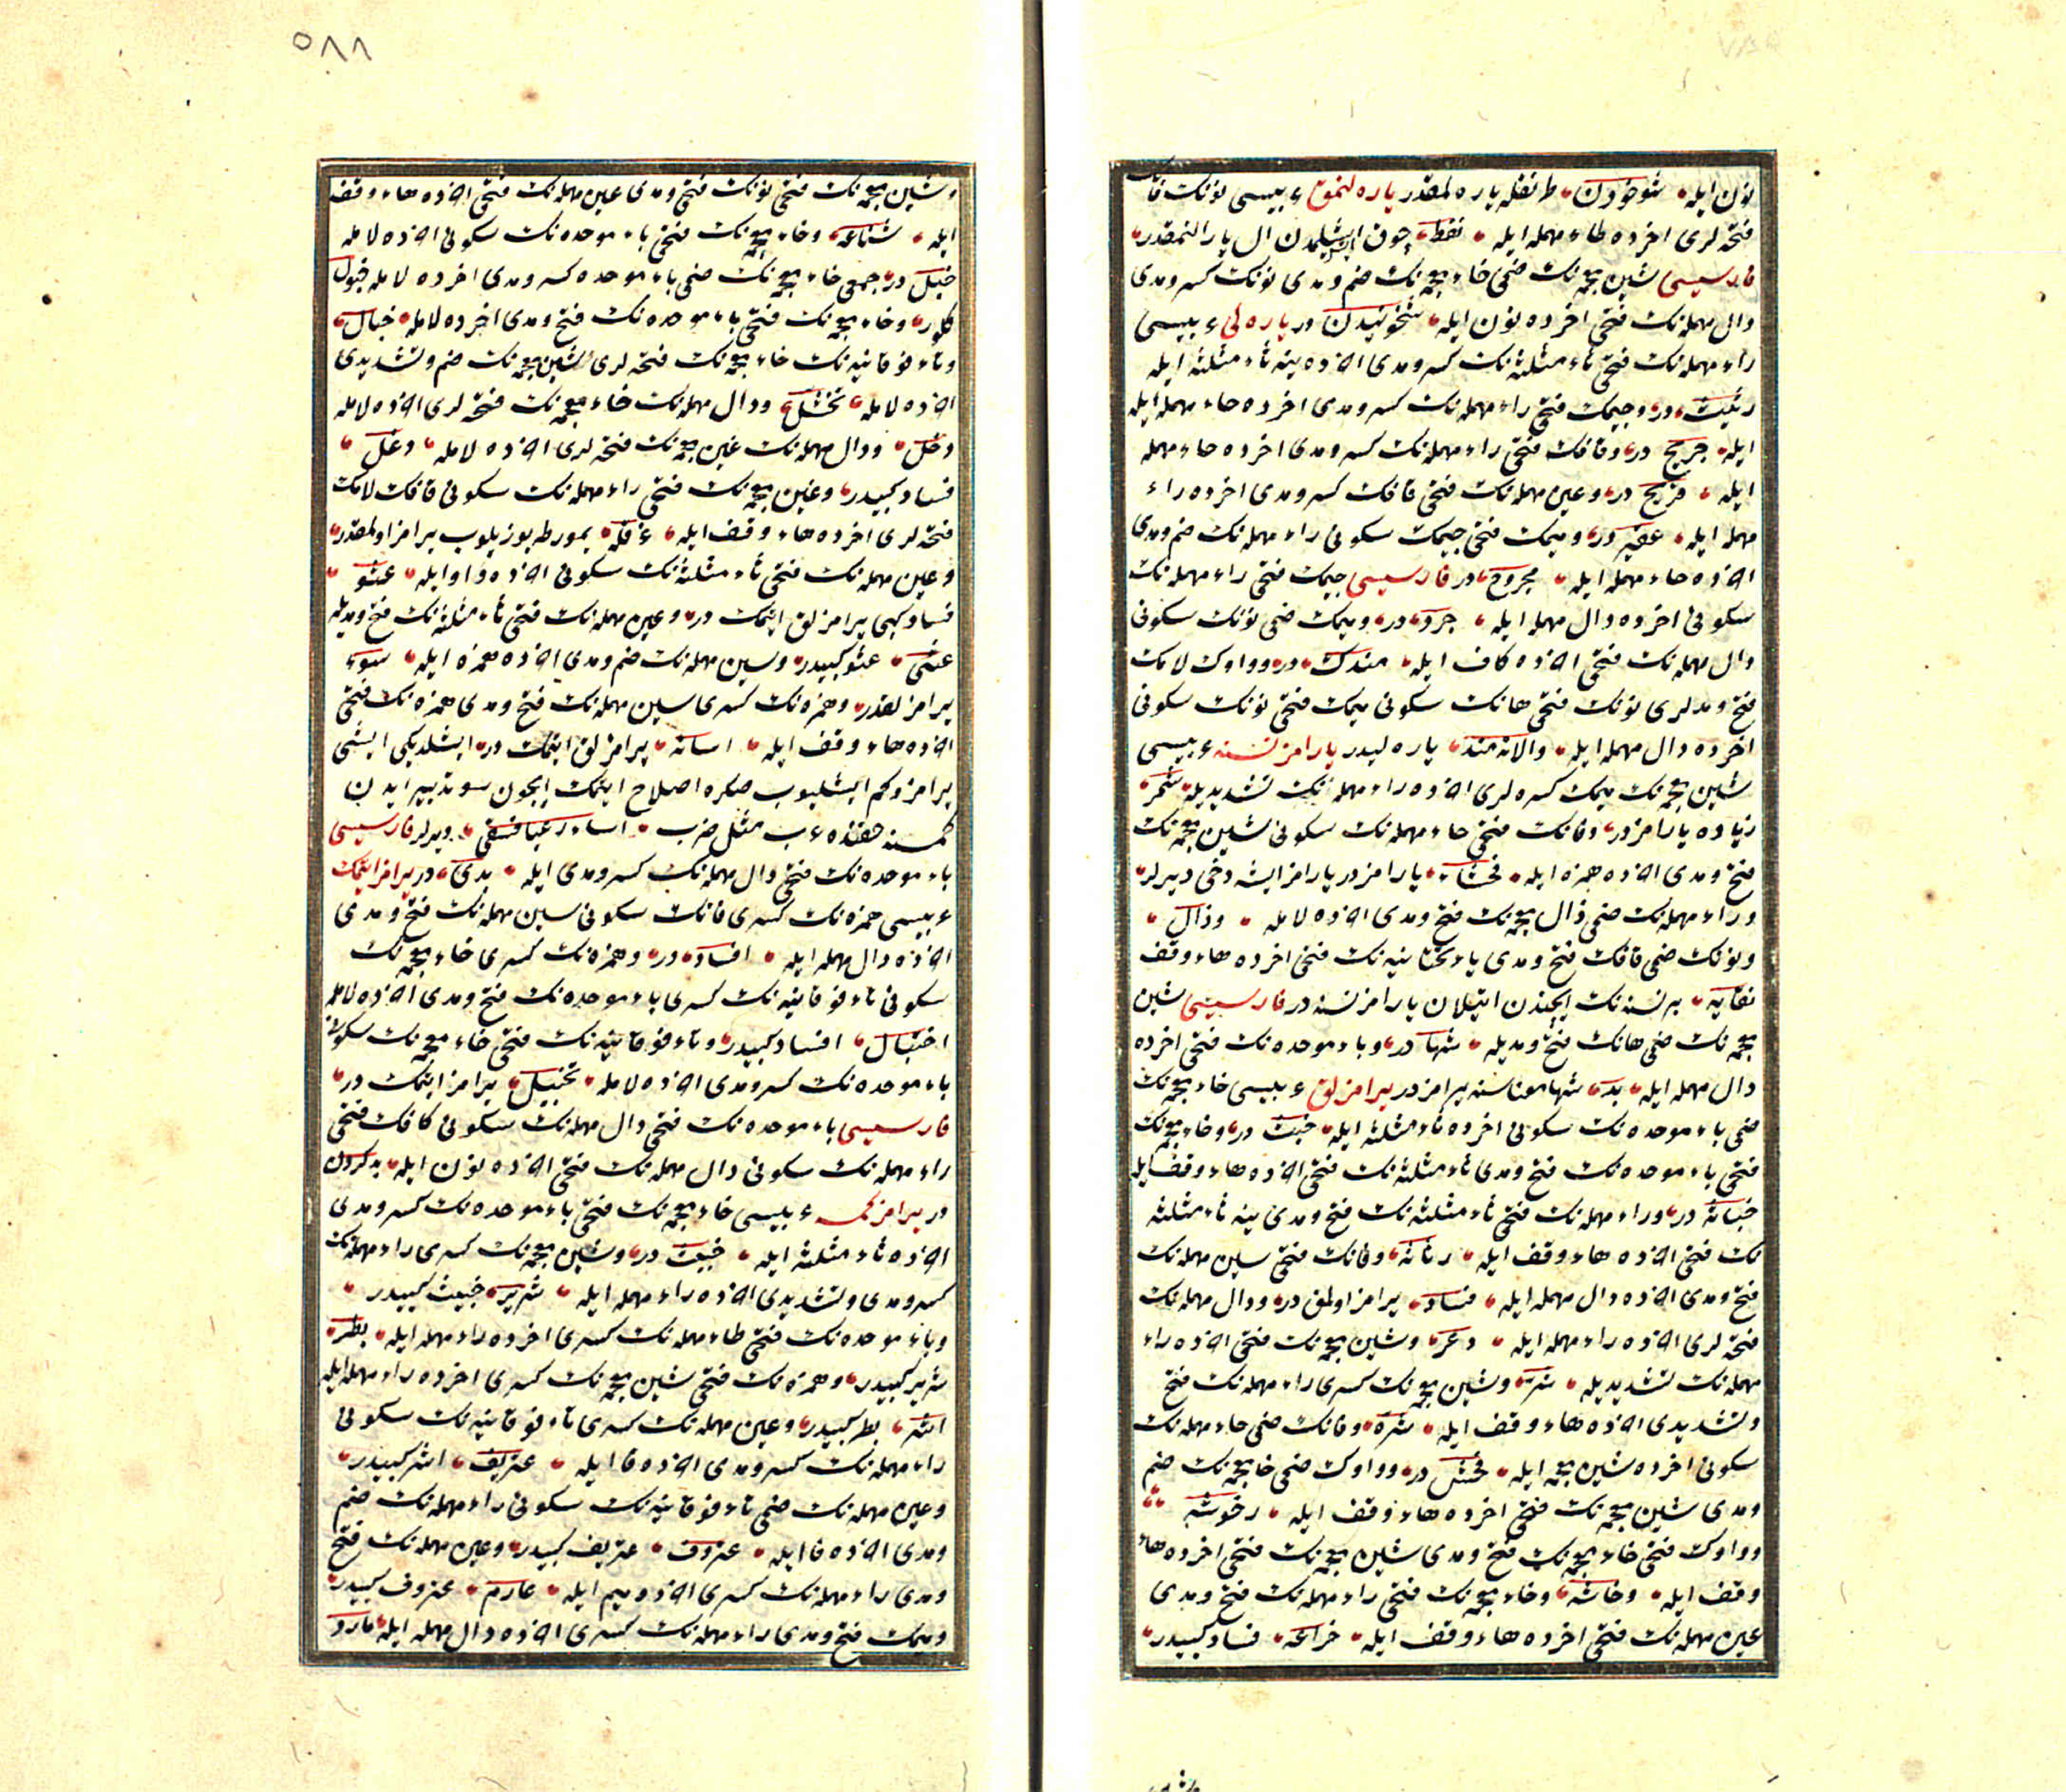 نون ایله شوخودن طرنغله یاره لمقدر یاره لنمق عربیسی نونک قافک
فتحه لری اخرده طاء مهمله ایله نقط چوق ایشلمدن ال یارالنمقدر
فارسیسی شین معجمه نک ضمی خاء معجمه نک ضم ومدی نونک کسر ومدی
دال مهمله نک فتحی اخرده نون ایله شخونیدن در یاره لی عربیسی
راء مهمله نک فتحی ثاء مثلثه نک کسر ومدی اخرده ینه ثاء مثلثه ایله
رثیث در وجیمک فتحی راء مهمله نک کسر ومدی اخرده حاء مهمله ایله
ایله جریح در وقافک فتحی راء مهمله نک کسر ومدی اخرده حاء مهمله
ایله قریح در وعین مهمله نک فتحی قافک کسر ومدی اخرده راء
مهمله ایله عقیر در ومیمک فتحی جیمک سکونی راء مهمله نک ضم ومدی
اخرده حاء مهمله ایله مجروح در فارسیسی جیمک فتحی راء مهمله نک
سکونی اخرده دال مهمله ایله جرد در ومیمک ضمی نونک سکونی
دال مهمله نک فتحی اخرده کاف ایله مندک در وواوک لامک
فتح ومدلری نونک فتحی هانک سکونی میمک فتحی نونک سکونی
اخرده دال مهمله ایله والانهمند یاره لیدر یارامز نسنه عربیسی
شین معجمه نک میمک کسره لری اخرده راء مهمله نک تشدیدیله شمر
زیاده یارامزدر وفانک فتحی حاء مهمله نک سکونی شین معجمه نک
فتح ومدی اخرده همزه ایله فحشاء یارامزدر یارامز ایشه دخی دیرلر
وراء مهمله نک ضمی ذال معجمه نک فتح ومدی اخرده لامله وذال
ونونک ضمی قافک فتح ومدی یاء تحتانیه نک فتحی اخرده هاء وقف
نقایه بر نسنه نک ایچندن اتیلان یارامز نسنه در فارسیسی شین
معجمه نک ضمی هانک فتح ومدیله شها در وباء موحده نک فتحی اخرده
دال مهمله ایله بد شها معناسنه یرامزدر یرامزلق عربیسی خاء معجمه نک
ضمی باء موحده نک سکونی اخرده ثاء مثلثه ایله خبث در وخاء معجمه نک
فتحی باء موحده نک فتح ومدی ثاء مثلثه نک فتحی اخرده هاء وقف ایله
خباثه در وراء مهمله نک فتحی ثاء مثلثه نک فتح ومدی ینه ثاء مثلثه
نک فتحی اخرده هاء وقف ایله رثاثه وفانک فتحی سین مهمله نک
فتح ومدی اخرده دال مهمله ایله فساد یرامز اولمق در ودال مهمله نک
فتحه لری اخرده راء مهمله ایله دعر وشین معجمه نک فتحی اخرده راء
مهمله نک تشدیدیله شر وشین معجمه نک کسری راء مهمله نک فتح
وتشدیدی اخرده هاء وقف ایله شره وفانک ضمی حاء مهمله نک
سکونی اخرده شین معجمه ایله فحش در وواوک ضمی خا معجمه نک ضم
ومدی شین معجمه نک فتحی اخرده هاء وقف ایله وخوشه
وواوک فتحی خاء معجمه نک فتح ومدی شین معجمه نک فتحی اخرده هاء
وقف ایله وخاشه وخاء معجمه نک فتحی راء مهمله نک فتح ومدی
عین مهمله نک فتحی اخرده هاء وقف ایله خراعه فساد کبیدر
٥٨٨
وشین معجمه نک فتحی نونک فتح ومدی عین مهمله نک فتحی اخرده هاء وقف
ایله شناعه وخاء معجمه نک فتحی باء موحده نک سکونی اخرده لامله
خبل در جمعی خاء معجمه نک ضمی باء موحده کسر ومدی اخرده لامله خبول
کلور وخاء معجمه نک فتحی باء موحده نک فتح ومدی اخرده لامله خبال
وتاء فوقانیه نک خاء معجمه نک فتحه لری شین معجمه نک ضم وتشدیدی
اخرده لامله تخشل ودال مهمله نک خاء معجمه نک فتحه لری اخرده لامله
دخل ودال مهمله نک غین معجمه نک فتحه لری اخرده لامله دغل
فساد کبیدر وغین معجمه نک فتحی راء مهمله نک سکونی قافک لامک
فتحه لری اخرده هاء وقف ایله غرقله یمورطه بوزیلوب یرامز اولمقدر
وعین مهمله نک فتحی ثاء مثلثه نک سکونی اخرده واو ایله عثو
فساد کبی یرامزلق ایتمک در وعین مهمله نک فتحی ثاء مثلثه نک فتح ومدیله
عثی عثو کبیدر وسین مهمله نک ضم ومدی اخرده همزه ایله سوء
یرامزلقدر وهمزه نک کسری سین مهمله نک فتح ومدی همزه نک فتحی
اخرده هاء وقف ایله اساءه یرامزلق ایتمک در ایشلدیکی ایشی
یرامز وکم ایشلیوب صکره اصلاح ایتمک ایچون سوء تدبیر ایدن
کمسنه حقنده عرب مثل ضرب اساء رعیا فسقی دیرلر فارسیسی
باء موحده نک فتحی دال مهمله نک کسر ومدی ایله بدی در یرامز ایتمک
عربیسی همزه نک کسری فانک سکونی سین مهمله نک فتح ومدی
اخرده دال مهمله ایله افساد در وهمزه نک کسری خاء معجمه نک
سکونی تاء فوقانیه نک کسری باء موحده نک فتح ومدی اخرده لامله
اختبال افساد کبیدر وتاء فوقانیه نک فتحی خاء معجمه نک سکونی
باء موحده نک کسر ومدی اخرده لامله تخبیل یرامز ایتمک در
فارسیسی باء موحده نک فتحی دال مهمله نک سکونی کافک فتحی
راء مهمله نک سکونی دال مهمله نک فتحی اخرده نون ایله بدکردن
در یرامز کمسه عربیسی خاء معجمه نک فتحی باء موحده نک کسر ومدی
اخرده ثاء مثلثه ایله خبیث در وشین معجمه نک کسری راء مهمله نک
کسر ومدی وتشدیدی اخرده راء مهمله ایله شریر خبیث کبیدر
وباء موحده نک فتحی طاء مهمله نک کسری اخرده راء مهمله ایله بطر
شریر کبیدر وهمزه نک فتحی شین معجمه نک کسری اخرده راء مهمله ایله
اشر بطر کبیدر وعین مهمله نک کسری تاء فوقانیه نک سکونی
راء مهمله نک کسر ومدی اخرده فا ایله عتریف اشر کبیدر
وعین مهمله نک ضمی تاء فوقانیه نک سکونی راء مهمله نک ضم
ومدی اخرده فا ایله عتروف عتریف کبیدر وعین مهمله نک فتح
ومدی راء مهمله نک کسری اخرده میم ایله عارم عتروف کبیدر
ومیمک فتح ومدی راء مهمله نک کسری اخرده دال مهمله ایله مارد